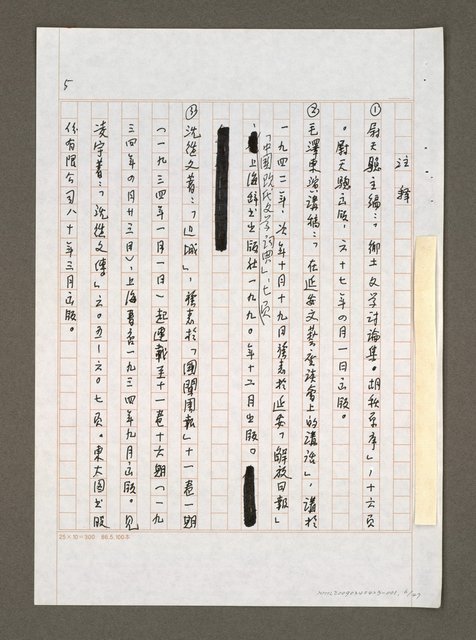 5
注釋
①尉天驄主編:「鄉土文學討論集。胡秋原序」,十六頁
。尉天驄出版,六十七年四月一日出版。
②毛澤東演講稿:「在延安文藝座談會上的講話」,講於
一九四二年,次年十月十九日發表於延安「解放日報」
「中國現代文學詞典」,七頁
,上海辭書出版社一九九〇年十二月出版。
③沈從文著:「邊城」,發表於「國聞周報」十一卷一期
(一九三四年一月一日)起連載至十一卷十六期(一九
三四年四月廿三日),上海書店一九三四年九月出版。見
凌宇著:「沈從文傳」六〇五—六〇七頁。東大圖書股
份有限公司八十年三月出版。
25×10=300 86.5.100本